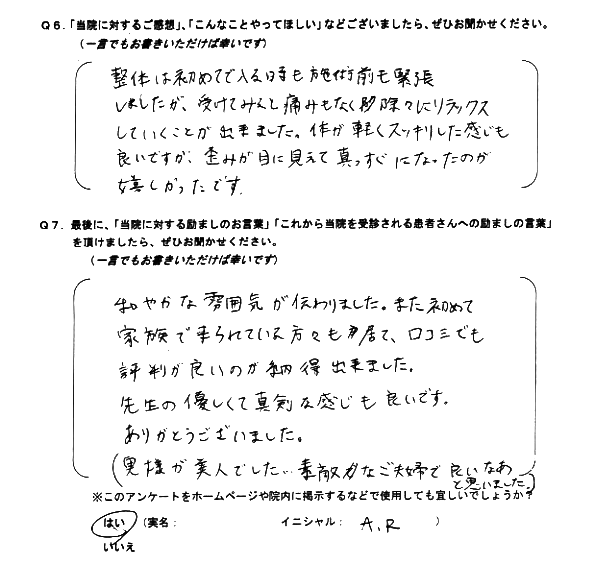 Q6.「当院に対するご感想」、「こんなことやってほしい」などございましたら、ぜひお聞かせください。
（一言でもお書きいただけば幸いです）
整体は初めてで入る時も施術前も緊張
しましたが、受けてみると痛みもなく段々にリラックス
していくことが出来ました。体が軽くスッキリした感じも
良いですが、歪みが目に見えて真っすぐになったのが
嬉しかったです。
Q7. 最後に、「当院に対する励ましのお言葉」「これから当院を受診される患者さんへの励ましの言葉」
を頂けましたら、ぜひお聞かせください。
（一言でもお書きいただけば幸いです）
和やかな雰囲気が伝わりました。また初めて
家族で来られている方々も居て、口コミでも
評判が良いのが納得出来ました。
先生の優しくて真剣な感じも良いです。
ありがとうございました。
（奥様が美人でした... 素敵なご夫婦で良いなあ
と思いました。）
※このアンケートをホームページや院内に掲示するなどで使用しても宜しいでしょうか？
はい （実名： イニシャル： A.R ）
いいえ